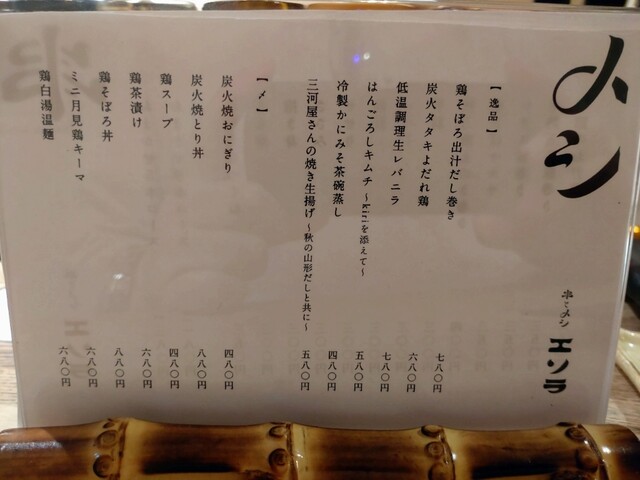 メシ
串とメシ
エソラ
【逸品】
鶏そぼろ出汁だし巻き 七八〇円
炭火タタキよだれ鶏 六八〇円
低温調理生レバニラ 七八〇円
はんごろしキムチ ～kiriを添えて～ 五八〇円
冷製かにみそ茶碗蒸し 四八〇円
三河屋さんの焼き生揚げ～秋の山形だしと共に～ 五八〇円
【〆】
炭火焼おにぎり 四八〇円
炭火焼とり丼 八八〇円
鶏スープ 四八〇円
鶏茶漬け 六八〇円
鶏そぼろ丼 八八〇円
ミニ月見鶏キーマ 六八〇円
鶏白湯温麺 六八〇円